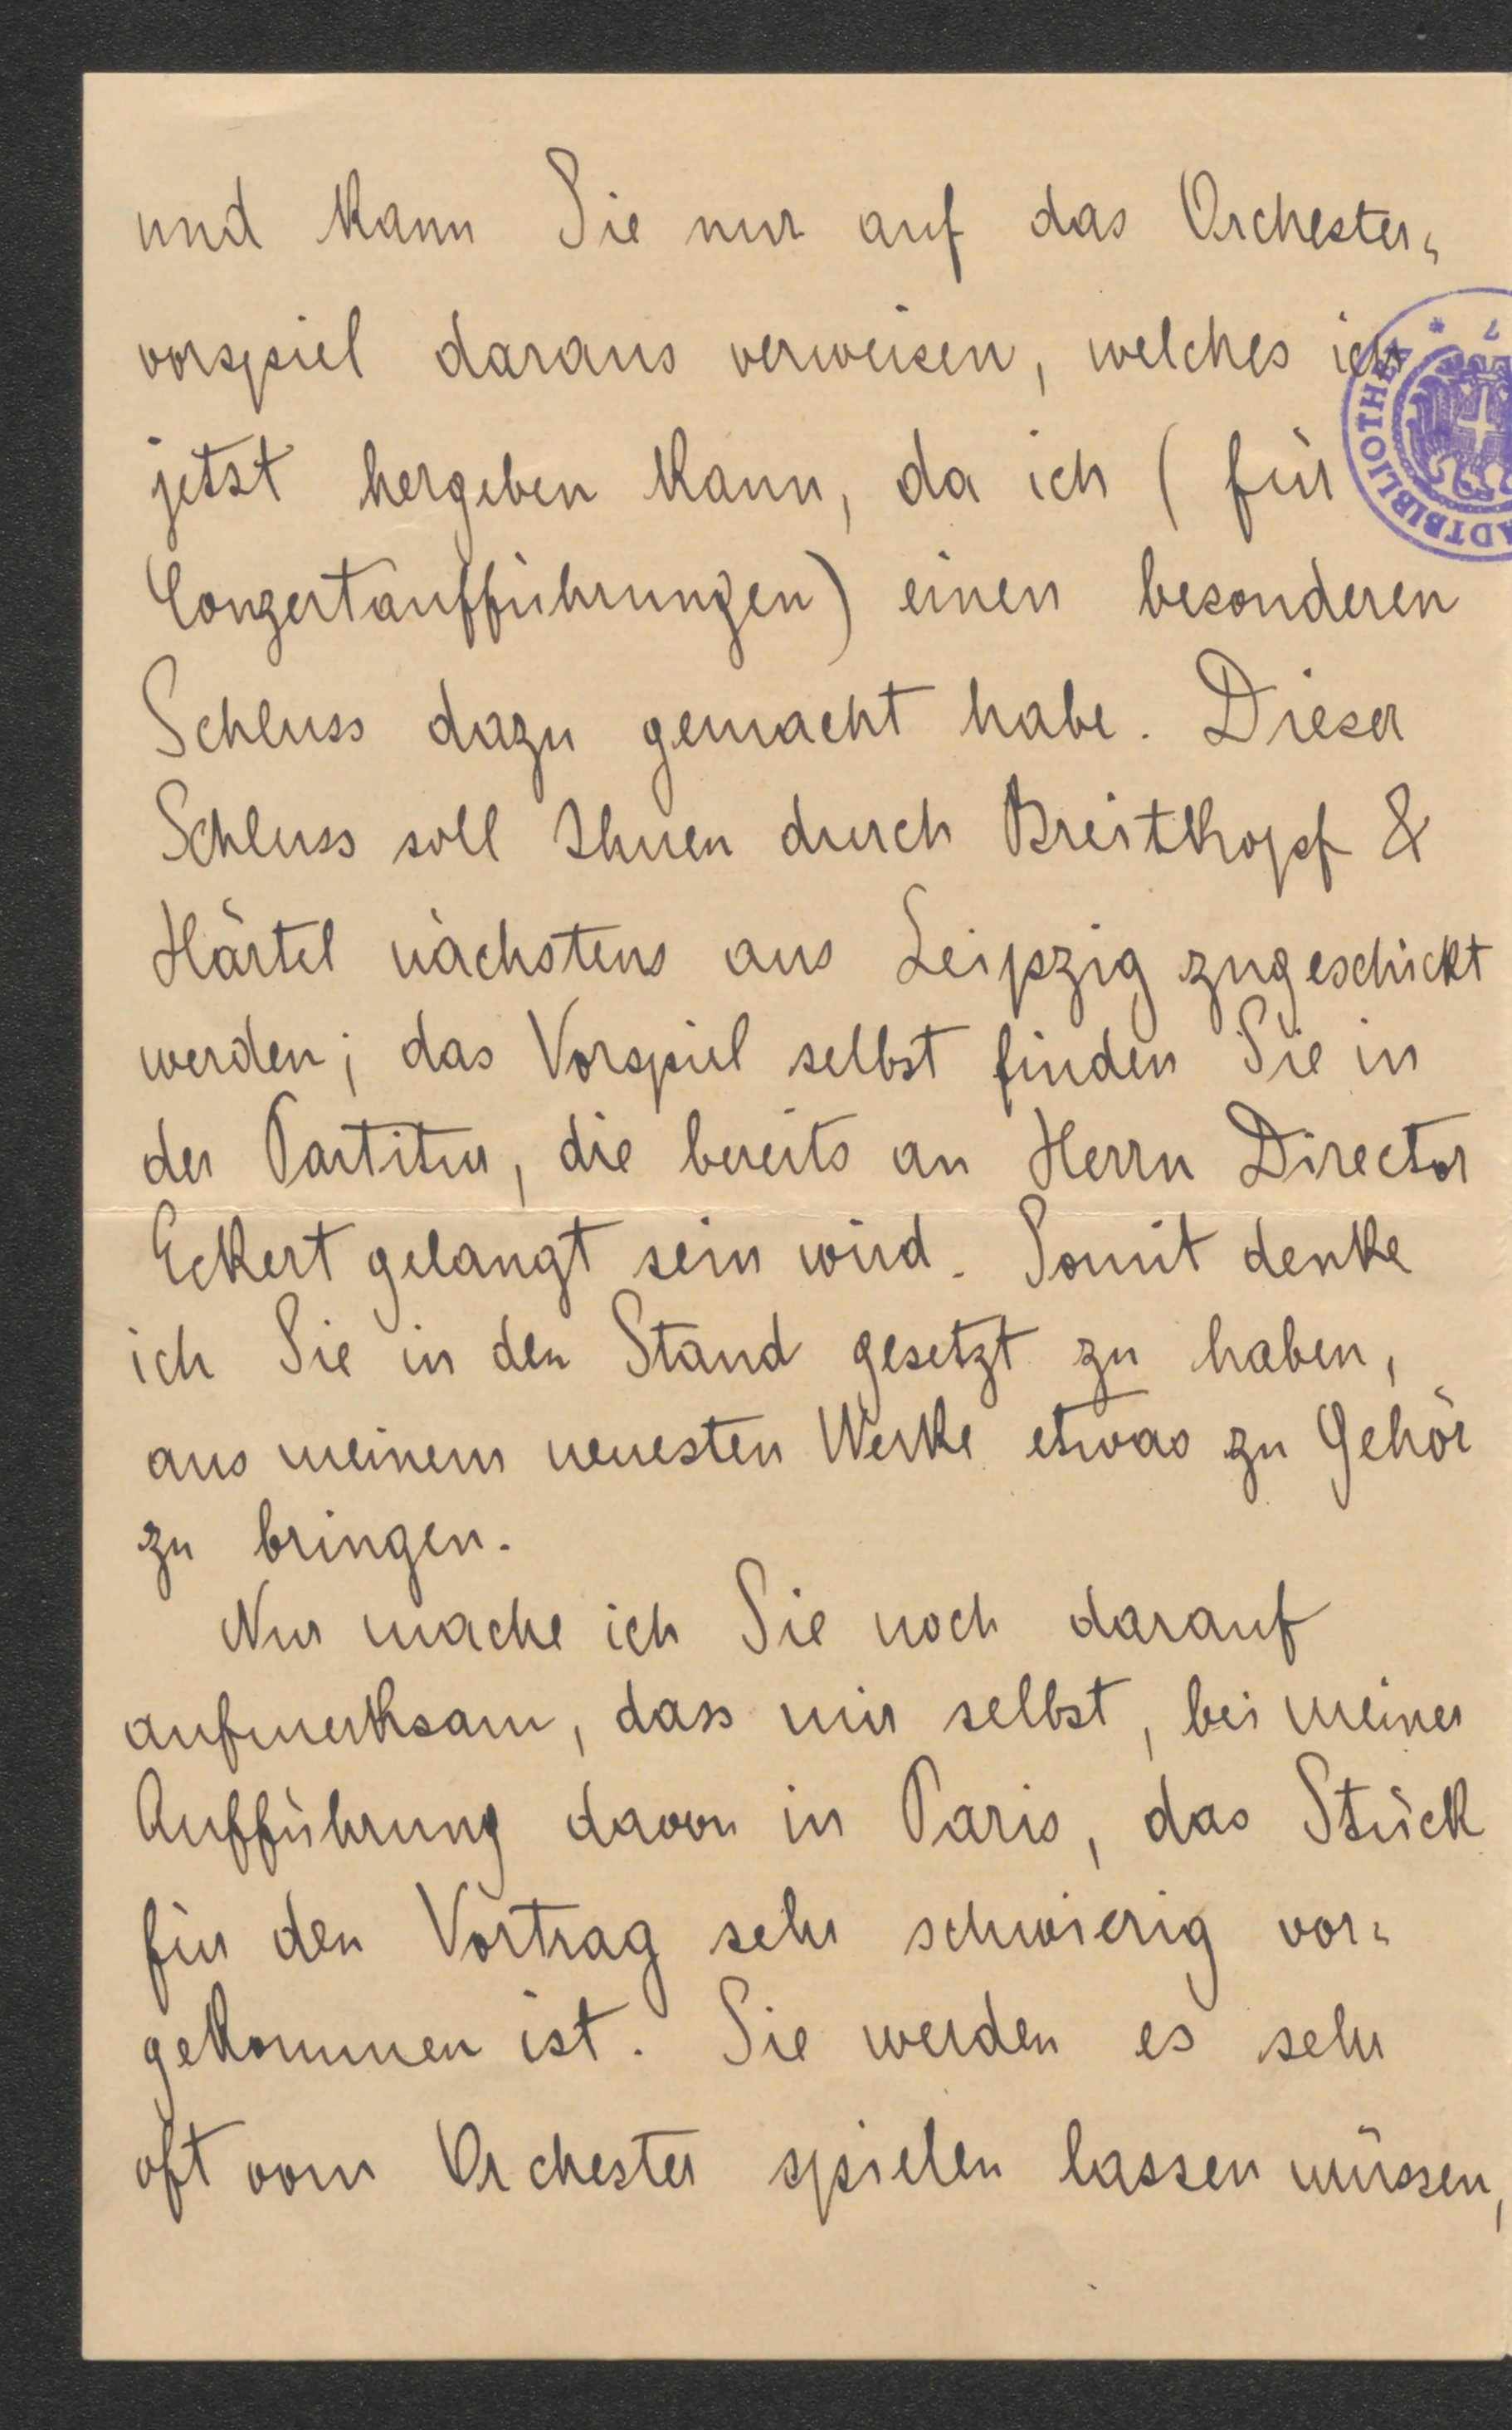 und kann Sie nur auf das Orchester=
vorspiel daraus verweisen, welches ich
jetzt hergeben kann, da ich (für
Conzertaufführungen) einen besonderen
Schluss dazu gemacht habe. Dieser
Schluss soll Ihnen durch Breitkopf &
Härtel nächstens aus Leipzig zugeschickt
werden; das Vorspiel selbst finden Sie in
der Partitur, die bereits an Herrn Director
Eckert gelangt sein wird. Somit denke
ich Sie in den Stand gesetzt zu haben,
aus meinem neuesten Werke etwas zu Gehör
zu bringen.
Nur mache ich Sie noch darauf
aufmerksam, dass mir selbst, bei meiner
Aufführung davon in Paris, das Stück
für den Vortrag sehr schwierig vor=
gekommen ist. Sie werden es sehr
oft vom Orchester spielen lassen müssen,